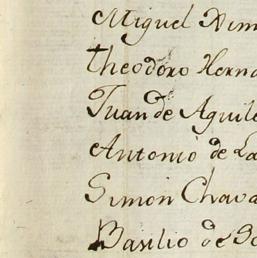 Miguel Xim
Theodoro Herna
Juan de Aguile
Antonio de La
Simon Chava
Basilio de